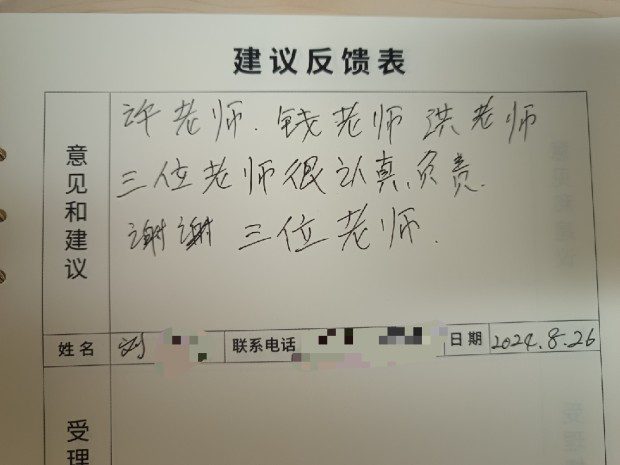 建议反馈表
意见和建议
许老师.钱老师洪老师
三位老师很认真,负责.
谢谢 三位老师.
姓名 刘 联系电话 日期 2024.8.26
受理